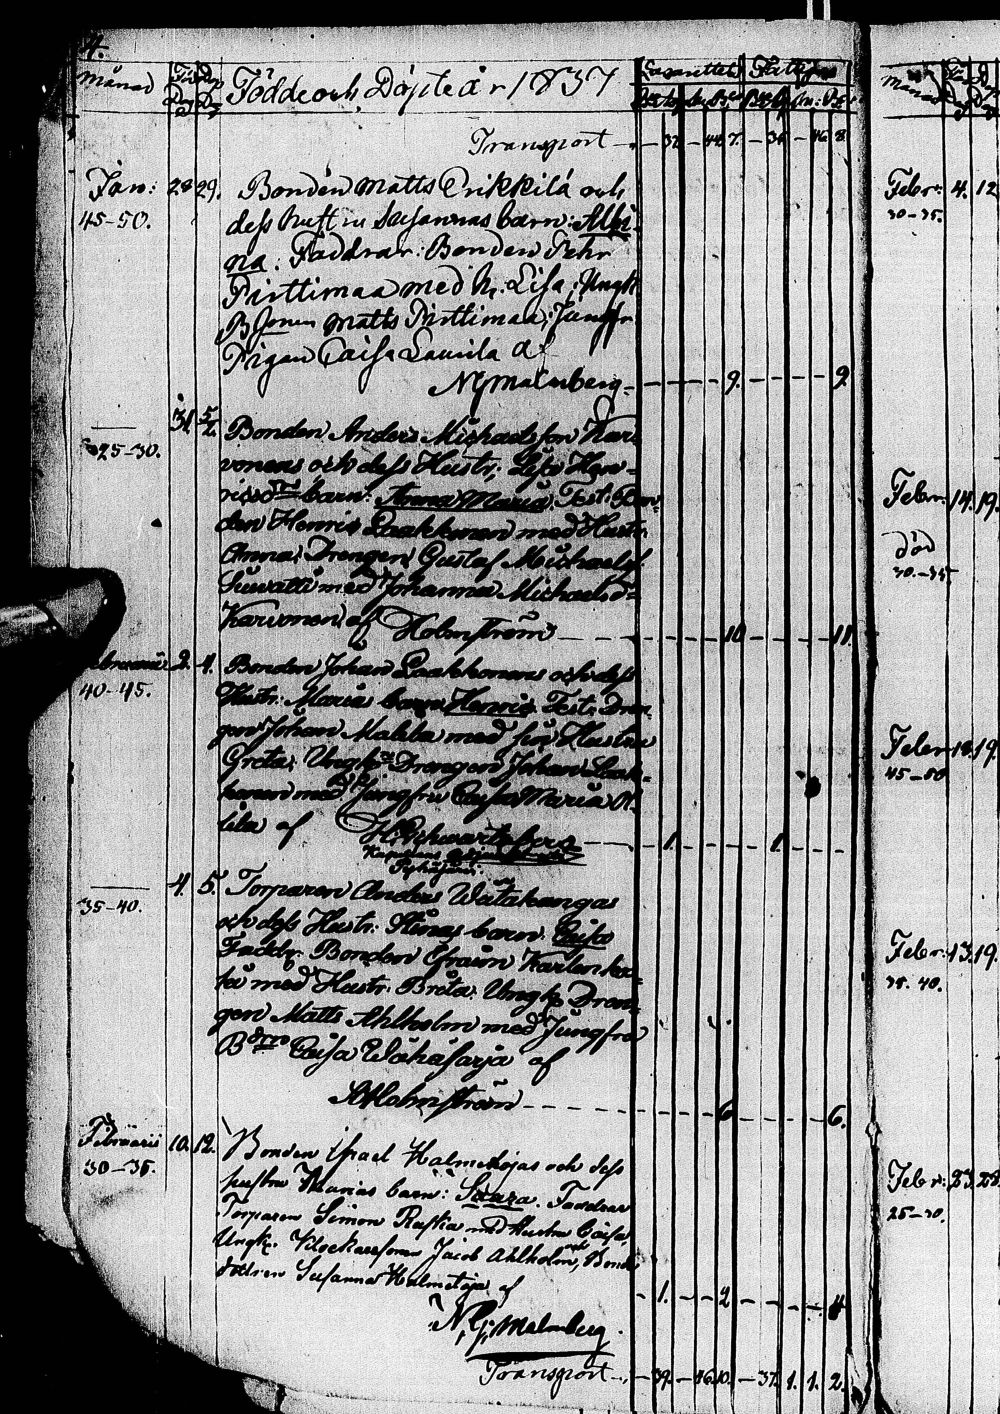 4.
Månad
Född
Döpt
Dag
Dag
Födde och Döpte År 1837
Lasarettet
Transport - 37. - 44. 7. - 36. - 46. 8.
Jan: 28 29. Bonden Matts Erikkilä och
45-50. dess hustru Susannas barn: Albi-
na. Faddrar: Bonden Pehr
Pirttimaa med h. Lisa; Ungk
B. Sonen Matts Pirttimaa; Jungfr
Pigan Caisa Laurila af
N G Malmberg. 9. 9.
31 5/2 Bonden Anders Michaelsson Kar-
25-30. vonens och dess Hustr: Lisa Hen-
ricsdrs barn: Anna Maria. Test: Bon-
den Henric Laakkonen med Hustr.
Anna; Drengen Gustaf Michaelss.
Suwatti med Johanna Michaelsd-
Karvonen af Holmström 10 11.
Februarii 2. 4. Bonden Johan Laakkonens och dess
40-45. Hustr: Marias barn Henric. Test. Dren-
gen Johan Malila med sin Hustru
Greta; Ungk. Drengen Johan Laak-
konen med Jungfru Caisa Maria
lila af H. Schwartzberg 1. 1.
Kapellan
Pyhäjärvi.
4. 5. Torparen Anders Wätäkangas
35-40. och dess Hustr: Stinas barn: Caisa
Faddr. Bonden Efraim
med Hustr. Brita; Ungk. Dren-
gen Matts Ahlholm med Jungfru
Bdrn Caisa Wähäsarja af
Holmström 6 6.
Februarii 10. 12. Bonden Israel Halmetojas och dess
30-35. hustru Marias barn: Saara. Faddrar
Torparen Simon Raffka med Hustru Caisa,
Ungk. Klockaresonen Jacob Ahlholm, och Bonde
dottren Susanna Halmetoja af
1. 2 4
N. G. Malmberg.
Transport - 39. - 46. 10. - 37. 1. 1. 2.
Månad
Febr. 4. 12
30-35.
Febr. 14. 19.
död
30-35
Febr 13. 19.
45-50
Febr. 13. 19.
35. 40.
Febr: 23. 28.
25-30.